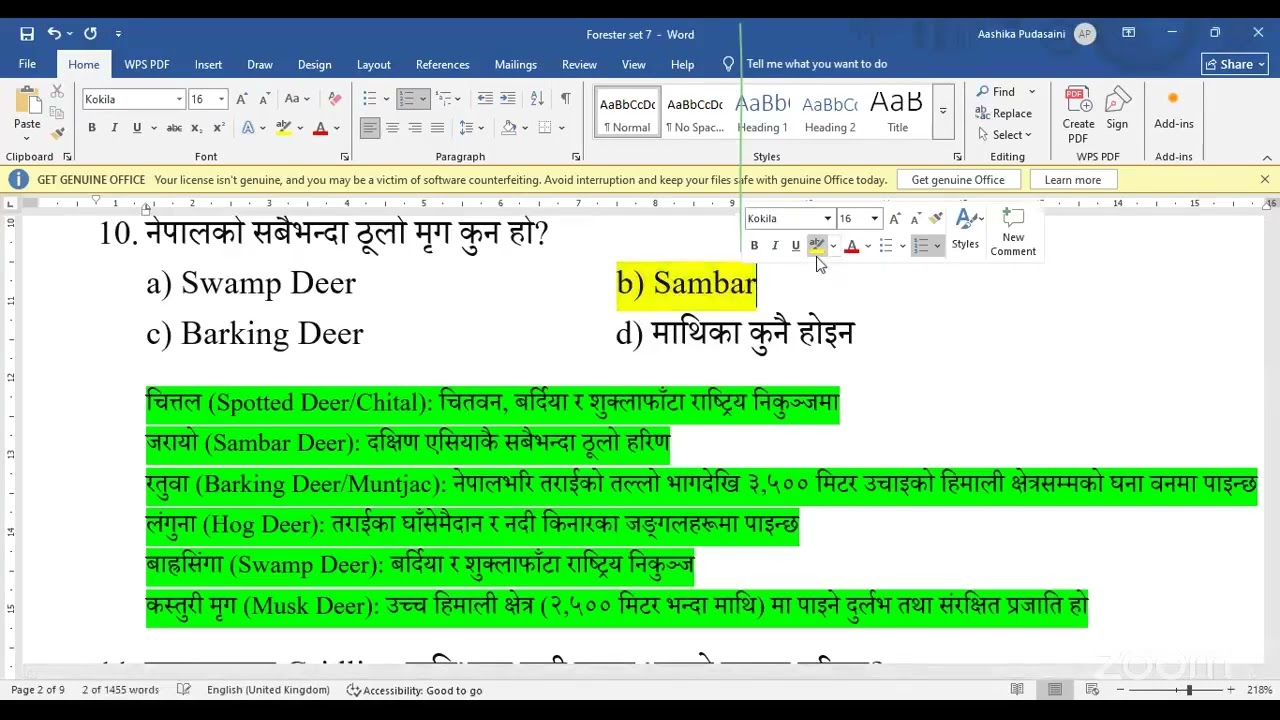 Forester set 7 - Word
Aashika Pudasaini AP
File Home WPS PDF Insert Draw Design Layout References Mailings Review View Help Tell me what you want to do Share
Paste Kokila 16 Aa AaBbCcDc AaBbCcDc AaBbC AaBbCc AaB Find Replace Select Create PDF Sign Add-ins
¶ Normal ¶ No Spac... Heading 1 Heading 2 Title
Clipboard Font Paragraph Styles Editing WPS PDF Add-ins
GET GENUINE OFFICE Your license isn't genuine, and you may be a victim of software counterfeiting. Avoid interruption and keep your files safe with genuine Office today. Get genuine Office Learn more
Kokila 16
B I U Styles New Comment
10. नेपालको सबैभन्दा ठूलो मृग कुन हो?
a) Swamp Deer b) Sambar
c) Barking Deer d) माथिका कुनै होइन
चित्तल (Spotted Deer/Chital): चितवन, बर्दिया र शुक्लाफाँटा राष्ट्रिय निकुञ्जमा
जरायो (Sambar Deer): दक्षिण एसियाकै सबैभन्दा ठूलो हरिण
रतुवा (Barking Deer/Muntjac): नेपालभरि तराईको तल्लो भागदेखि ३,५०० मिटर उचाइको हिमाली क्षेत्रसम्मको घना वनमा पाइन्छ
लंगुना (Hog Deer): तराईका घाँसेमैदान र नदी किनारका जङ्गलहरूमा पाइन्छ
बाह्रसिंगा (Swamp Deer): बर्दिया र शुक्लाफाँटा राष्ट्रिय निकुञ्ज
कस्तुरी मृग (Musk Deer): उच्च हिमाली क्षेत्र (२,५०० मिटर भन्दा माथि) मा पाइने दुर्लभ तथा संरक्षित प्रजाति हो
zoom
Page 2 of 9 2 of 1455 words English (United Kingdom) Accessibility: Good to go 218%